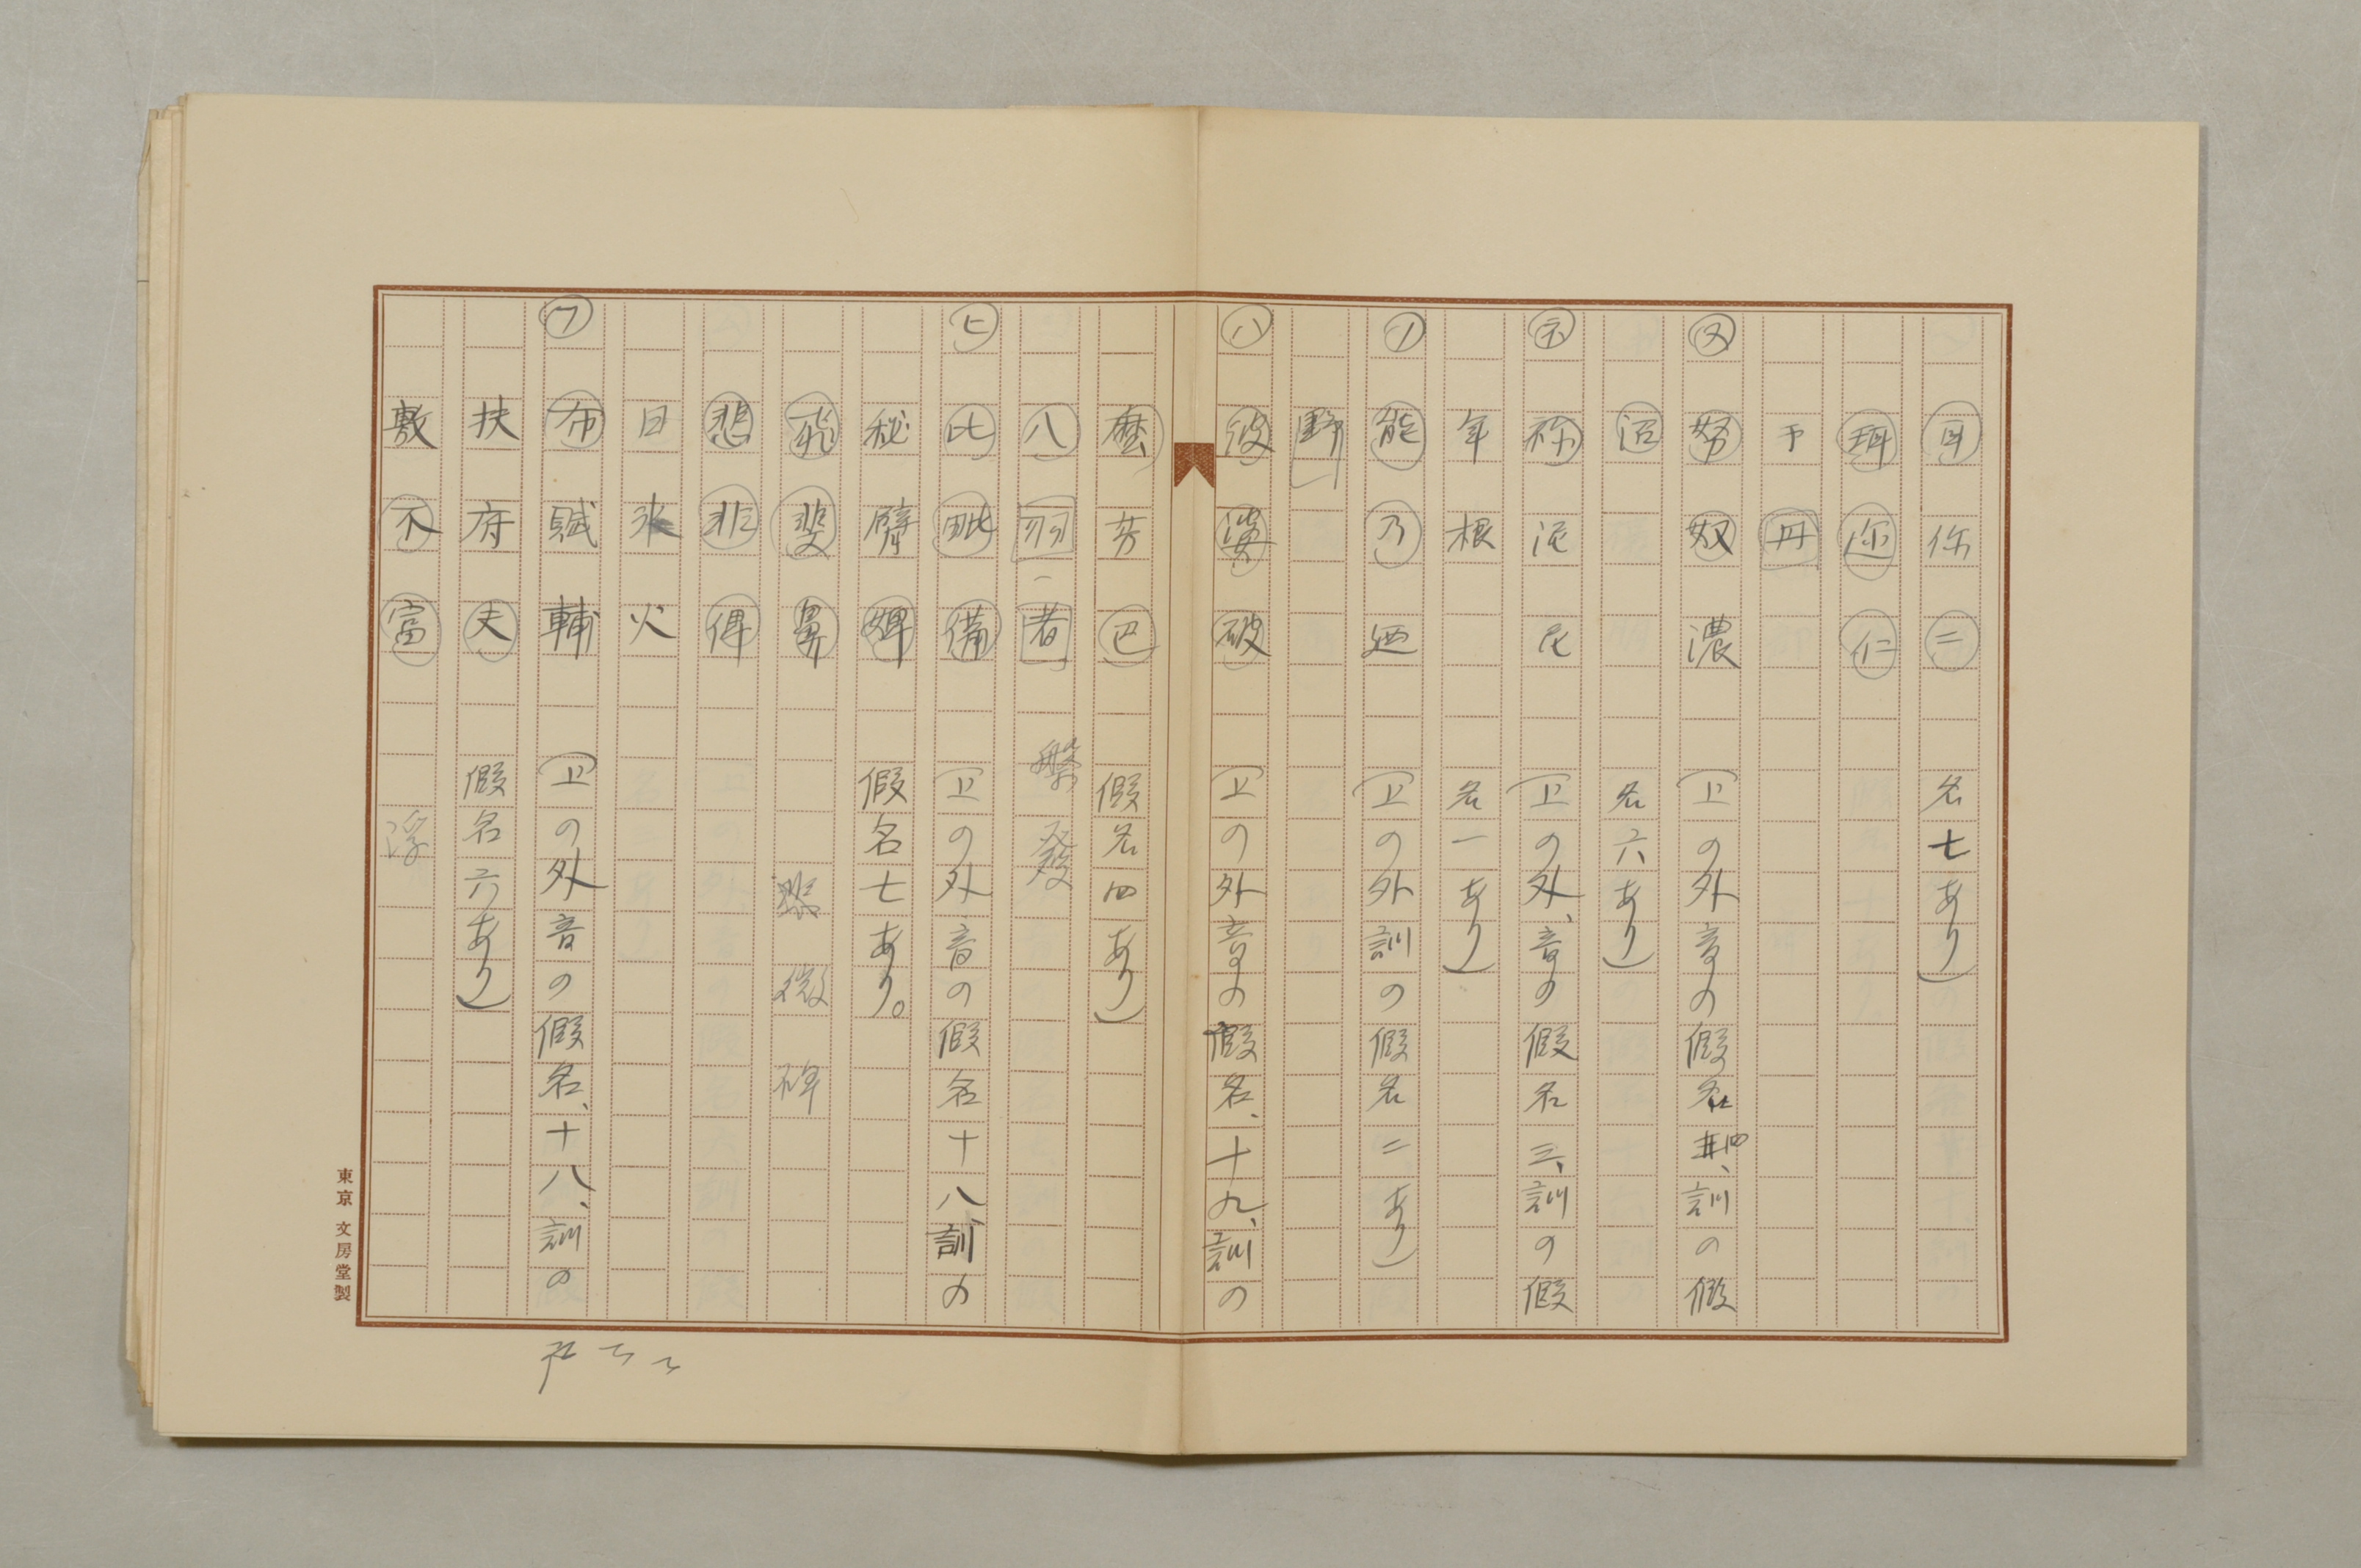 耳 你 二 名七あり)
珥 迩 仁
予 丹
ヌ 努 奴 濃 (上の外音の假名四、訓の假
沼 名六あり)
ネ 祢 泥 尼 (上の外、音の假名三、訓の假
年 根 名一あり)
ノ 能 乃 廼 (上の外訓の假名二あり)
野
ハ 波 婆 破 (上の外音の假名、十九、訓の
麼 芳 巴 假名四あり)
八 羽 者 盤 發
ヒ 比 毗 備 (上の外音の假名十八、訓の
秘 臂 婢 假名七あり。
飛 斐 鼻 微 碑
悲 非 俾
日 氷 火
フ 布 賦 輔 (上の外音の假名、十八、訓の
扶 府 夫 假名六あり)
敷 不 富 浮
東京 文房堂製